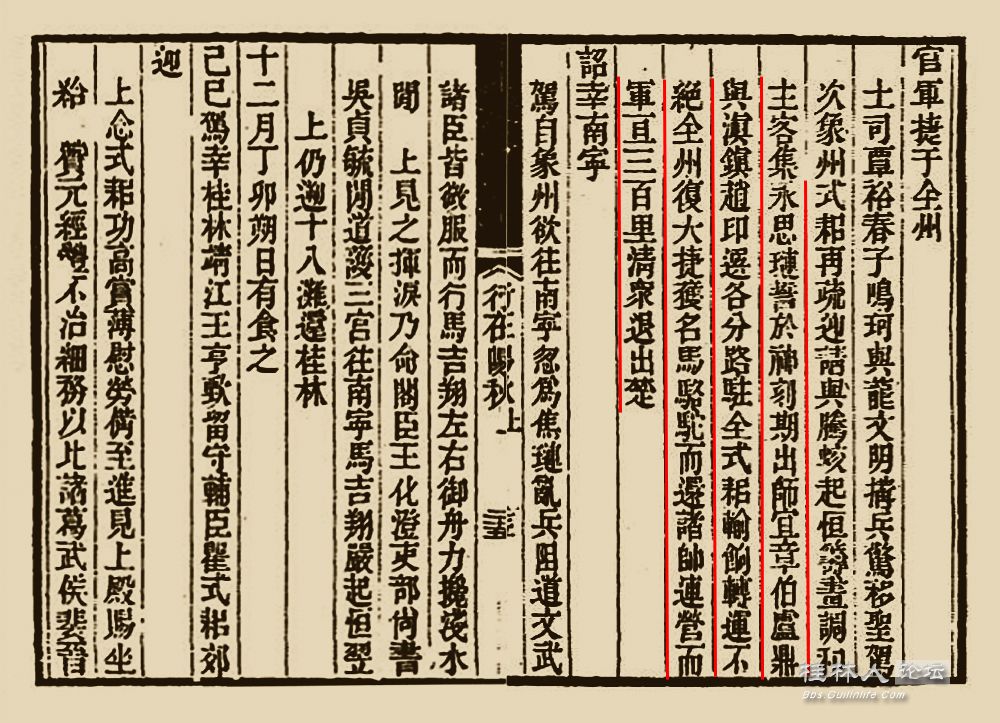 官軍捷于全州
土司覃裕春子鳴珂與龍文明搆兵驚移聖駕
次象州式耜再疏迎請與騰蛟起恒籌畫調和
主客集永思璉誓於神刻期出師宜章伯盧鼎
與滇鎮趙印選各分路駐全式耜輸餉轉運不
絕全州復大捷獲名馬駱駝而還諸帥連營而
軍亘三百里清衆退出楚
詔幸南寧
駕自象州欲往南寧忽爲焦璉亂兵阻道文武
行在陽秋 上
諸臣皆微服而行馬吉翔左右御舟力挽淺水
間 上見之揮淚乃命閣臣王化澄吏部尚書
吳貞毓間道護三宮往南寧馬吉翔嚴起恒翌
上仍迴十八灘還桂林
十二月丁卯朔日有食之
己巳駕幸桂林靖江王亨歅留守輔臣瞿式耜郊
迎
上念式耜功高賞薄慰勞備至進見上殿賜坐
給 贊元經體不冶細務以比諸葛武侯裴晉
桂林人论坛
Bbs.Guilinlife.Com